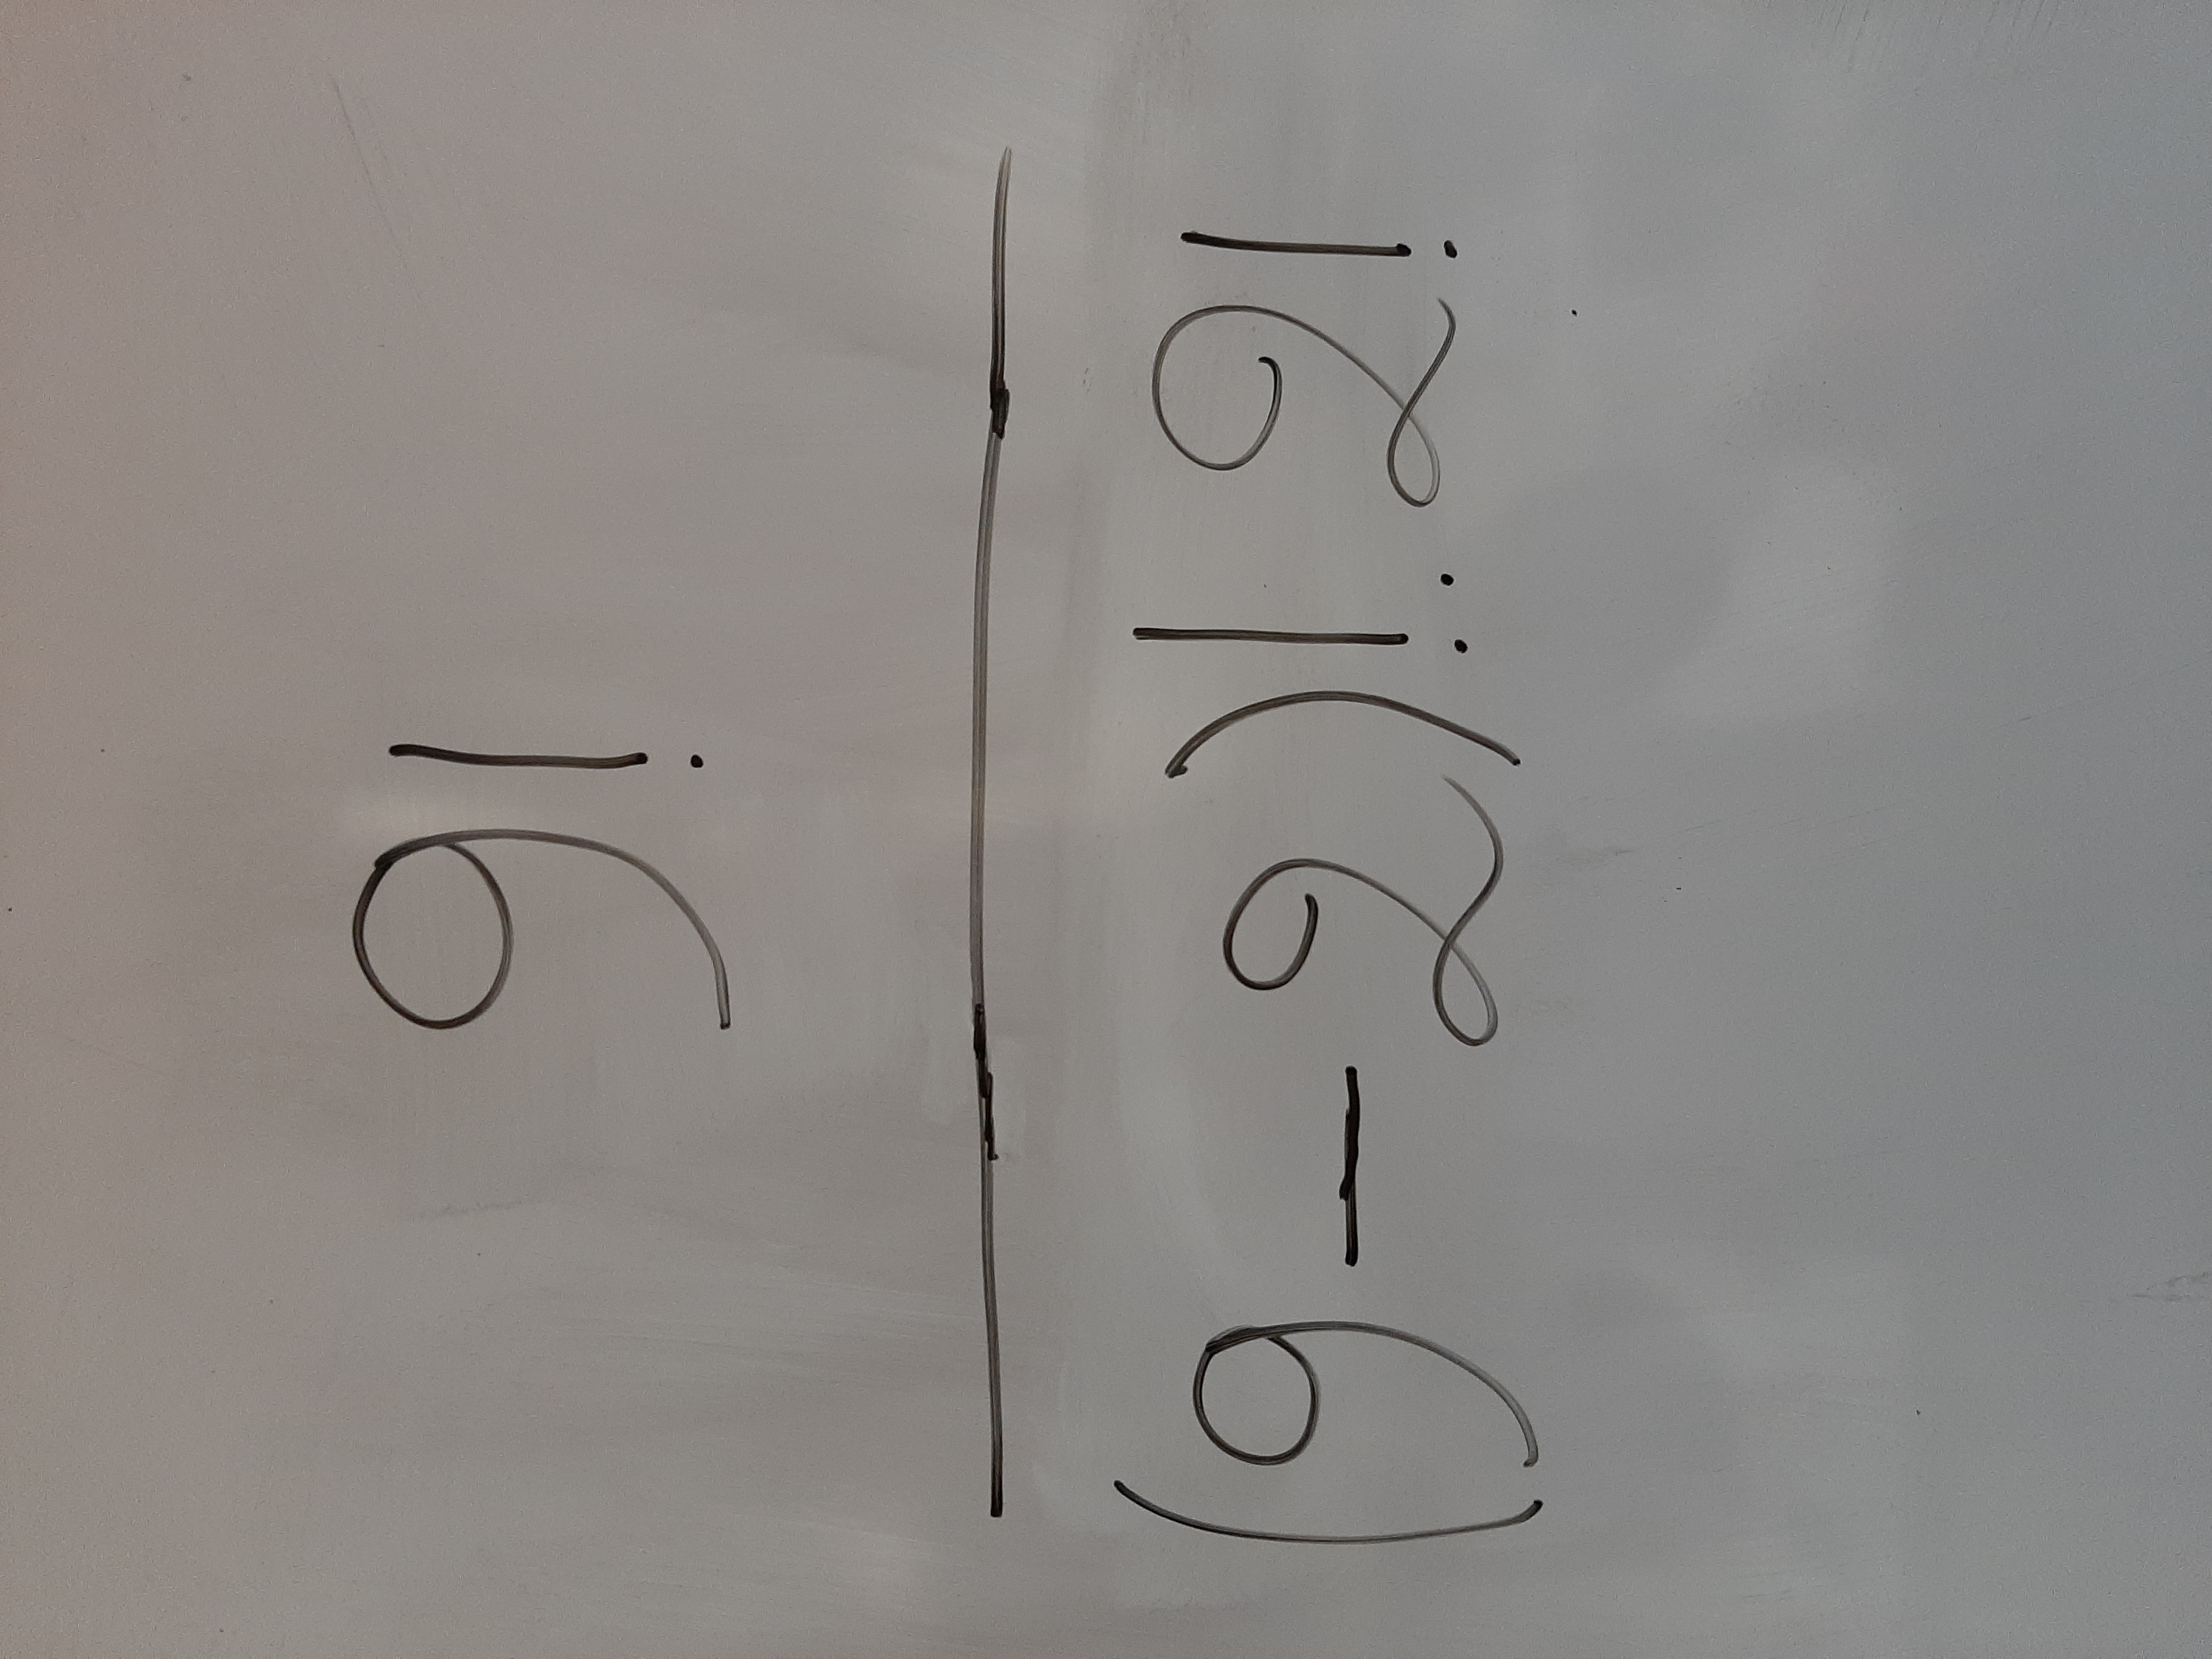 9!
(9-2)!.2!